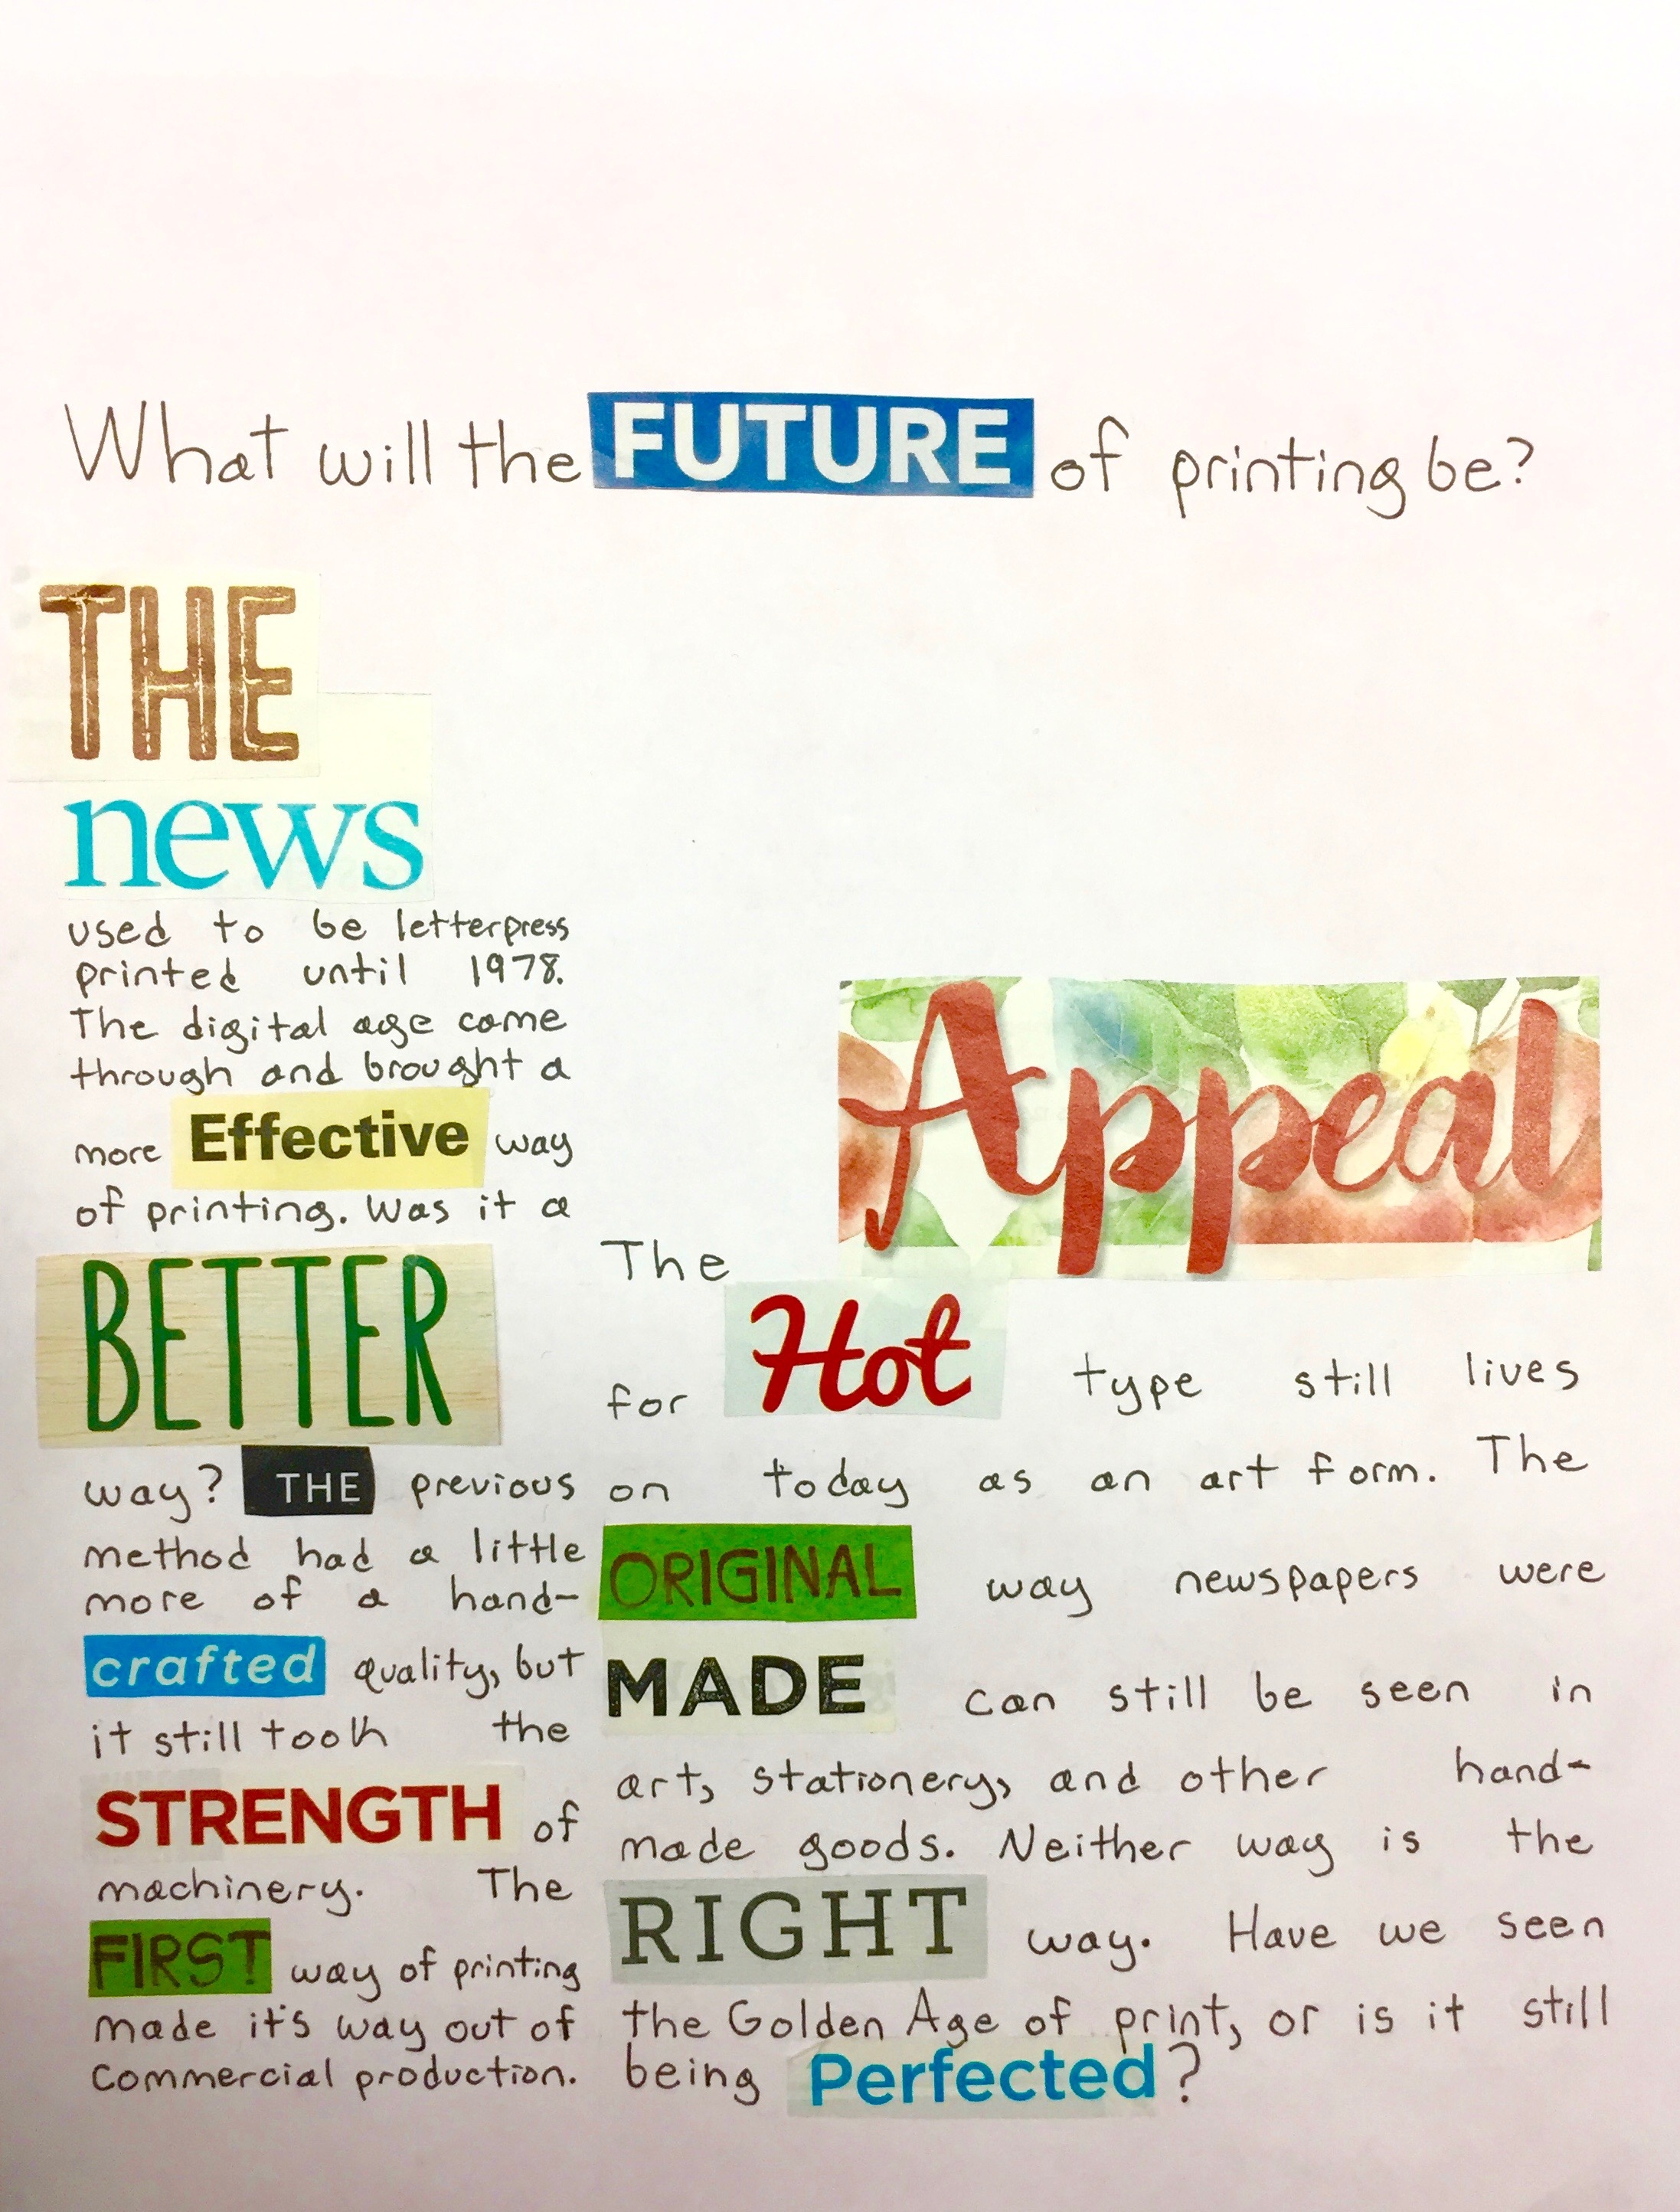 What will the FUTURE of printing be?
THE
news
used to be letterpress
printed until 1978.
The digital age came
through and brought a
more Effective way
of printing. Was it a
BETTER
way? THE previous
method had a little
more of a hand-
crafted quality, but
it still took the
STRENGTH of
machinery. The
FIRST way of printing
made it's way out of
commercial production.
The Appeal
for Hot type still lives
on today as an art form. The
ORIGINAL way newspapers were
MADE can still be seen in
art, stationery, and other hand-
made goods. Neither way is the
RIGHT way. Have we seen
the Golden Age of print, or is it still
being Perfected?